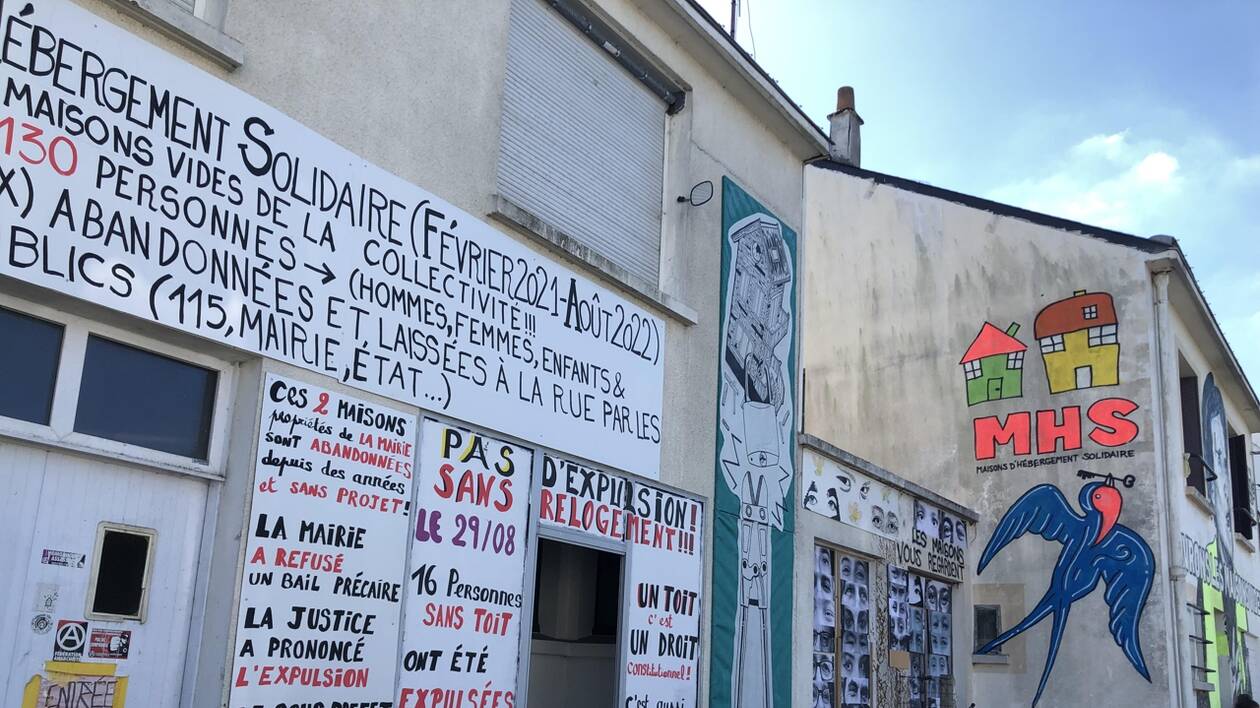 ÉBERGEMENT SOLIDAIRE (FÉVRIER 2021-AOÛT 2022)
MAISONS VIDES DE LA COLLECTIVITÉ!!!
130 PERSONNES → (HOMMES, FEMMES, ENFANTS &
X) ABANDONNÉES ET LAISSÉES À LA RUE PAR LES
BLICS (115, MAIRIE, ÉTAT...)
CES 2 MAISONS
propriétés de LA MAIRIE
sont ABANDONNÉES
depuis des années
et SANS PROJET!
LA MAIRIE
A REFUSÉ
UN BAIL PRÉCAIRE
LA JUSTICE
A PRONONCÉ
L'EXPULSION
PAS D'EXPULSION!
SANS RELOGEMENT!!!
LE 29/08
16 Personnes
SANS TOIT
ONT ÉTÉ
EXPULSÉES
UN TOIT
c'est
UN DROIT
constitutionnel!
c'est aussi
LES MAISONS
VOUS REGARDENT
MHS
MAISONS D'HÉBERGEMENT SOLIDAIRE
FÉDÉRATION
ANARCHISTE
ENTRÉE